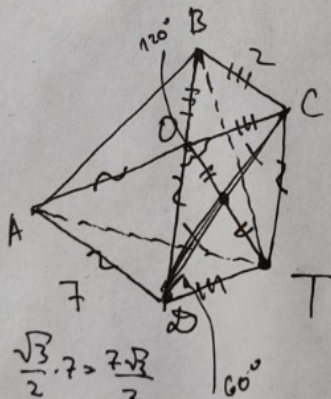 B
120°
2
C
O
A
7
D
T
60°
√3/2 · 7 = 7√3/2